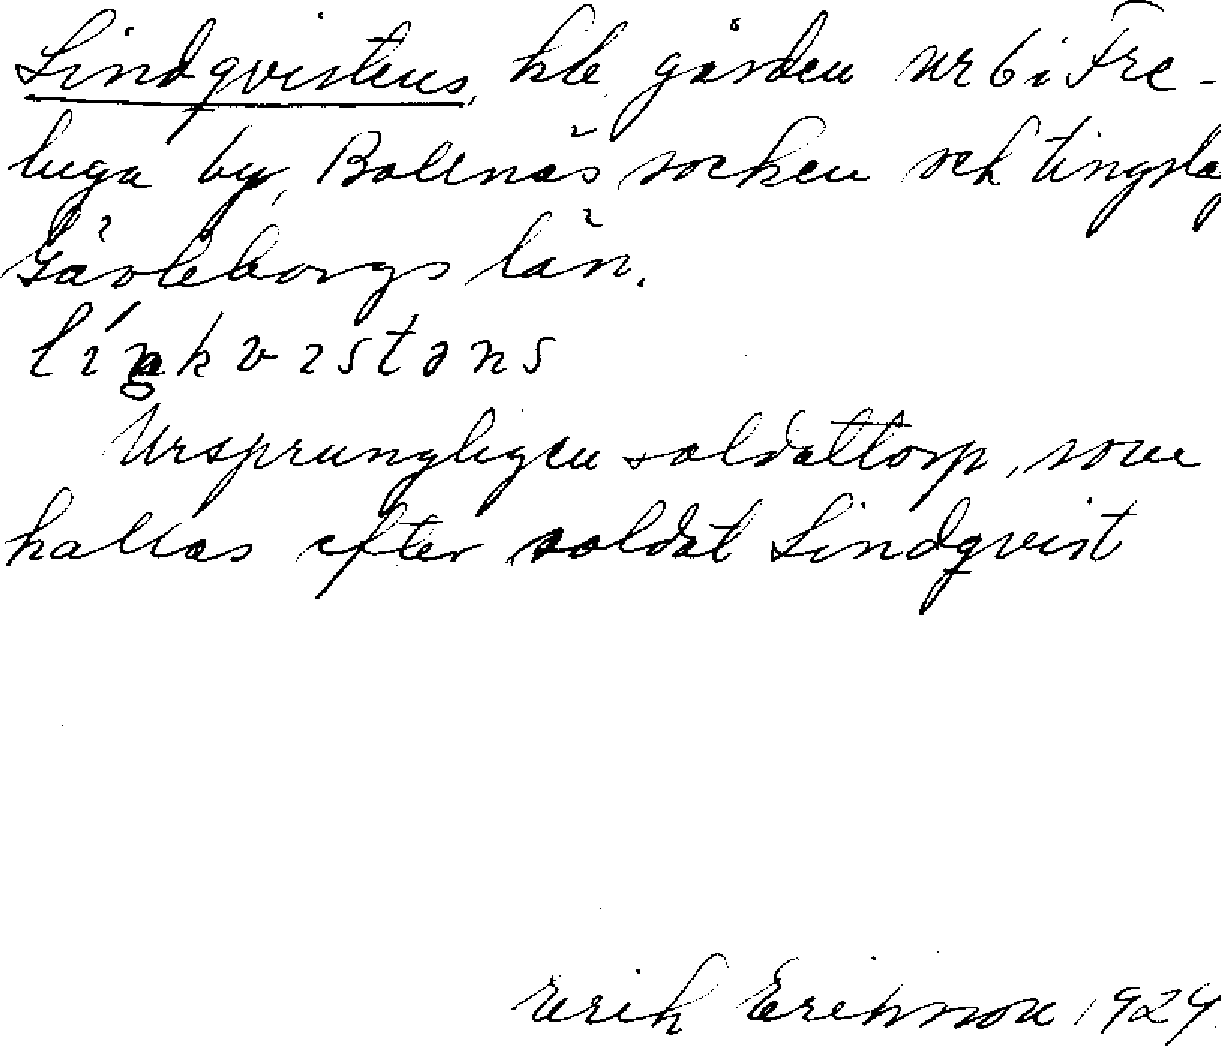 Lindqvistens, hle gården nr 6 i Fre-
luga by, Bollnäs socken och tingslag
Gävleborgs län.
líŋkvɪstəns
Ursprungligen soldattorp, som
kallas efter soldat Lindqvist
Erik Eriksson 1924.